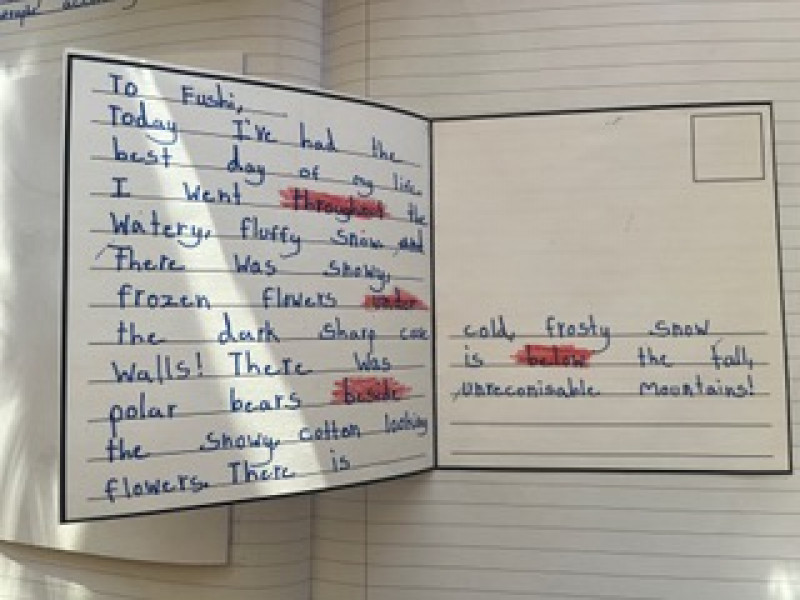 To Fushi,
Today I've had the
best day of my life.
I went throughout the
watery, fluffy snow and
There was snowy,
frozen flowers under
the dark sharp cave
walls! There was
polar bears beside
the snowy, cotton looking
flowers. There is
cold, frosty snow
is below the tall,
unreconisable mountains!